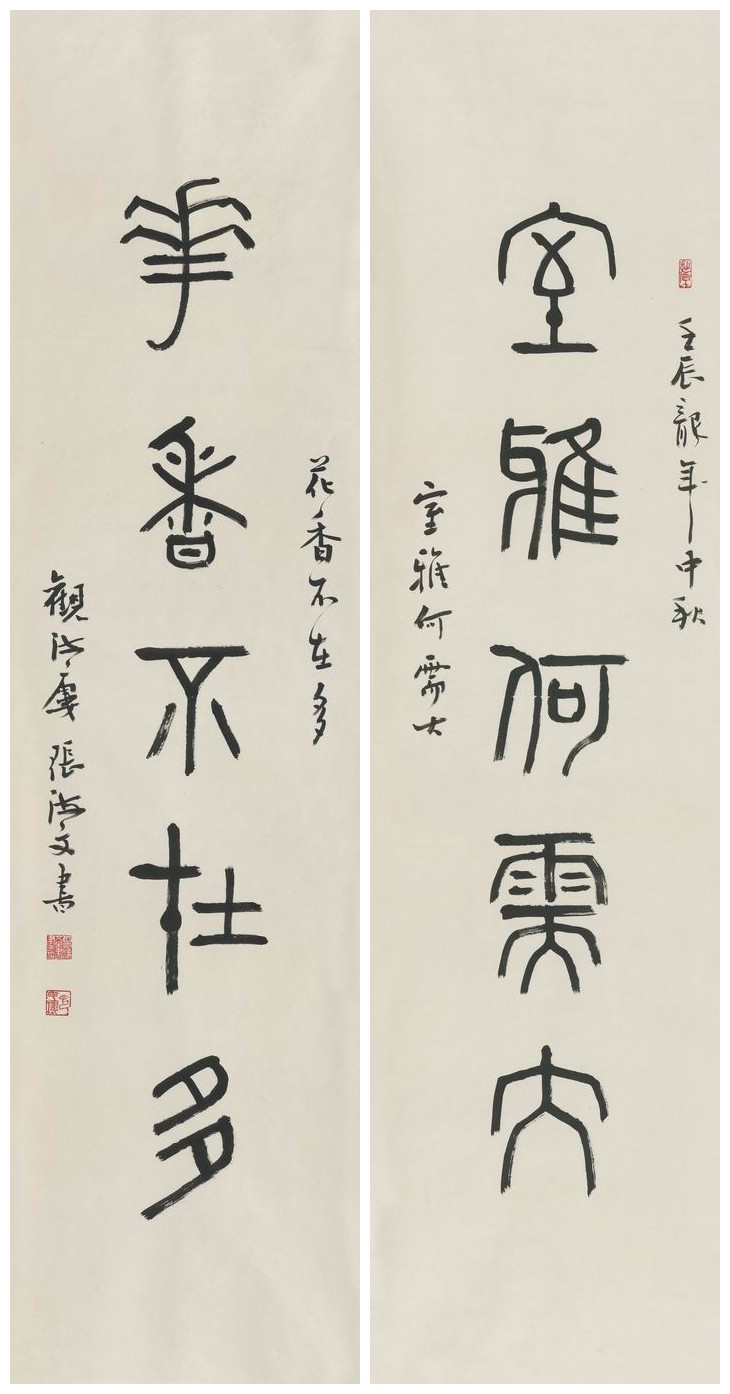 壬辰龍年中秋
室雅何需大
室雅何需大
花香不在多
花香不在多
張海文書